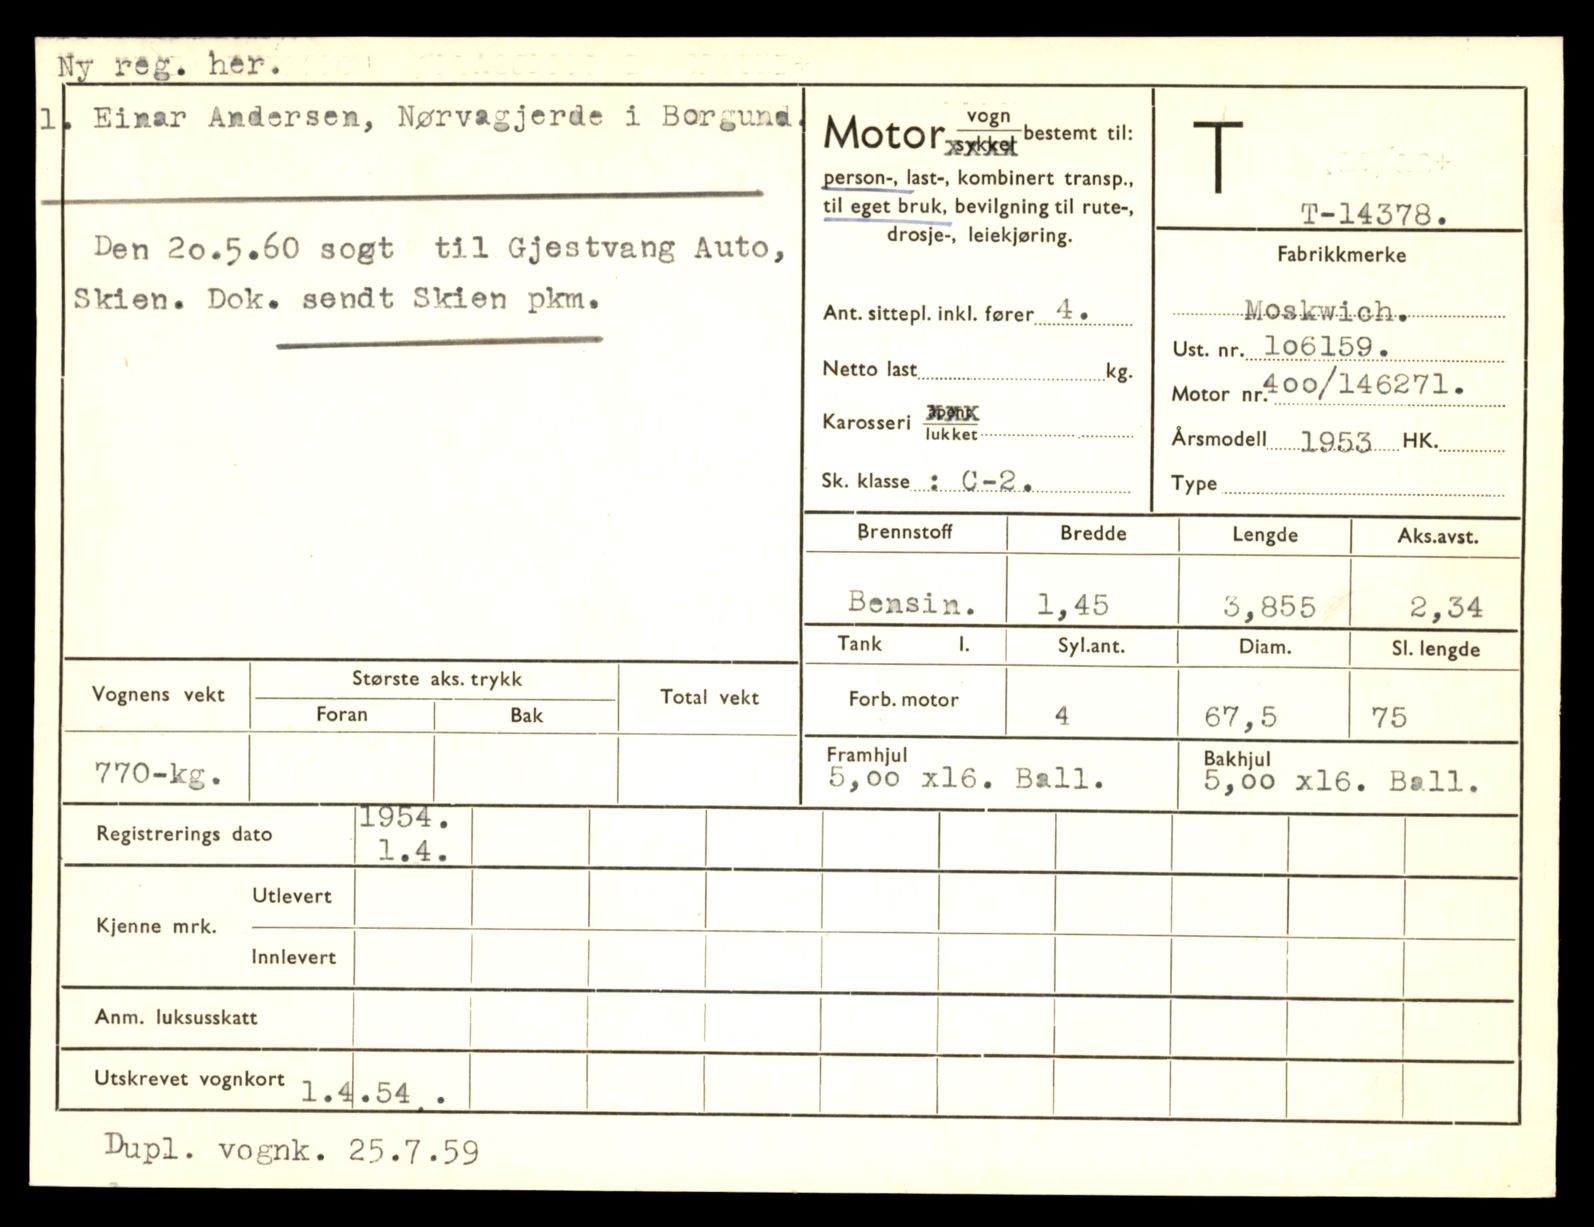 Ny reg. her.
1. Einar Andersen, Nørvagjerde i Borgund.
Den 20.5.60 sogt til Gjestvang Auto,
Skien. Dok. sendt Skien pkm.
Motor vogn
sykkel bestemt til:
person-, last-, kombinert transp.,
til eget bruk, bevilgning til rute-,
drosje-, leiekjøring.
Ant. sittepl. inkl. fører 4.
Netto last kg.
Karosseri åpent
lukket
Sk. klasse : C-2.
T
T-14378.
Fabrikkmerke
Moskwich.
Ust. nr. 106159.
Motor nr. 400/146271.
Årsmodell 1953 HK.
Type
Brennstoff Bredde Lengde Aks.avst.
Bensin. 1,45 3,855 2,34
Tank l. Syl.ant. Diam. Sl. lengde
Forb. motor 4 67,5 75
Framhjul Bakhjul
5,00 x16. Ball. 5,00 x16. Ball.
Vognens vekt Største aks. trykk Total vekt
Foran Bak
770-kg.
Registrerings dato 1954.
1.4.
Kjenne mrk. Utlevert
Innlevert
Anm. luksusskatt
Utskrevet vognkort 1.4.54 .
Dupl. vognk. 25.7.59